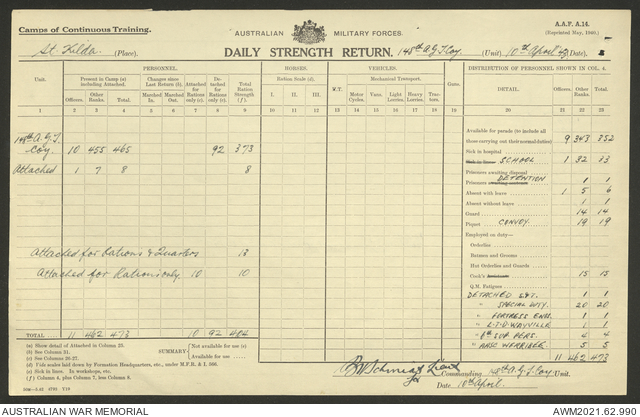 Camps of Continuous Training.
AUSTRALIAN MILITARY FORCES.
A.A.F. A.14.
(Reprinted May, 1940.)
St. Kilda. (Place).
DAILY STRENGTH RETURN.
148th A.G.T. Coy (Unit) 10th April 43 (Date).
PERSONNEL. HORSES. VEHICLES. DISTRIBUTION OF PERSONNEL SHOWN IN COL. 4.
Unit. Present in Camp (a) including Attached. Changes since Last Return (b). Attached for Rations only (c). Detached for Rations only (c). Total Ration Strength (f). Ration Scale (d). V.T. Mechanical Transport. Guns. DETAIL. Officers. Other Ranks. Total.
Officers. Other Ranks. Total. Marched In. Marched Out. I. II. III. Motor Cycles. Vans. Light Lorries. Heavy Lorries. Tractors.
1 2 3 4 5 6 7 8 9 10 11 12 13 14 15 16 17 18 19 20 21 22 23
Available for parade (to include all
those carrying out their normal duties) 9 343 352
148th A.G.T. Coy. 10 455 465 92 373
Sick in hospital
SCHOOL 1 32 33
Attached 1 7 8 8
Prisoners awaiting disposal
Prisoners DETENTION 1 1
Absent with leave 1 5 6
Absent without leave 1 1
Guard 14 14
Piquet CONVOY. 19 19
Employed on duty—
Orderlies
Attached for Rations & Quarters 13
Batmen and Grooms
Hut Orderlies and Guards
Attached for Rations only 10 10
Cook's 15 15
Q.M. Fatigues
DETACHED 1 1
" SPECIAL DUTY. 20 20
" FORTRESS ENGS. 1 1
" L.T.D. WAYVILLE 1 1
" SUP PERS. 4 4
" AASC WERRIBEE 5 5
TOTAL 11 462 473 10 92 404
11 462 473
(a) Show detail of Attached in Column 25.
(b) See Column 31.
(c) See Columns 26-27.
(d) Vide scales laid down by Formation Headquarters, etc., under M.F.R. & I. 566.
(e) Sick in lines. In workshops, etc.
(f) Column 4, plus Column 7, less Column 8.
SUMMARY
Not available for use
Available for use
Schmidt Lieut
for Commanding 148 A.G.T. Coy Unit.
Date 10th April.
AUSTRALIAN WAR MEMORIAL
AWM2021.62.990